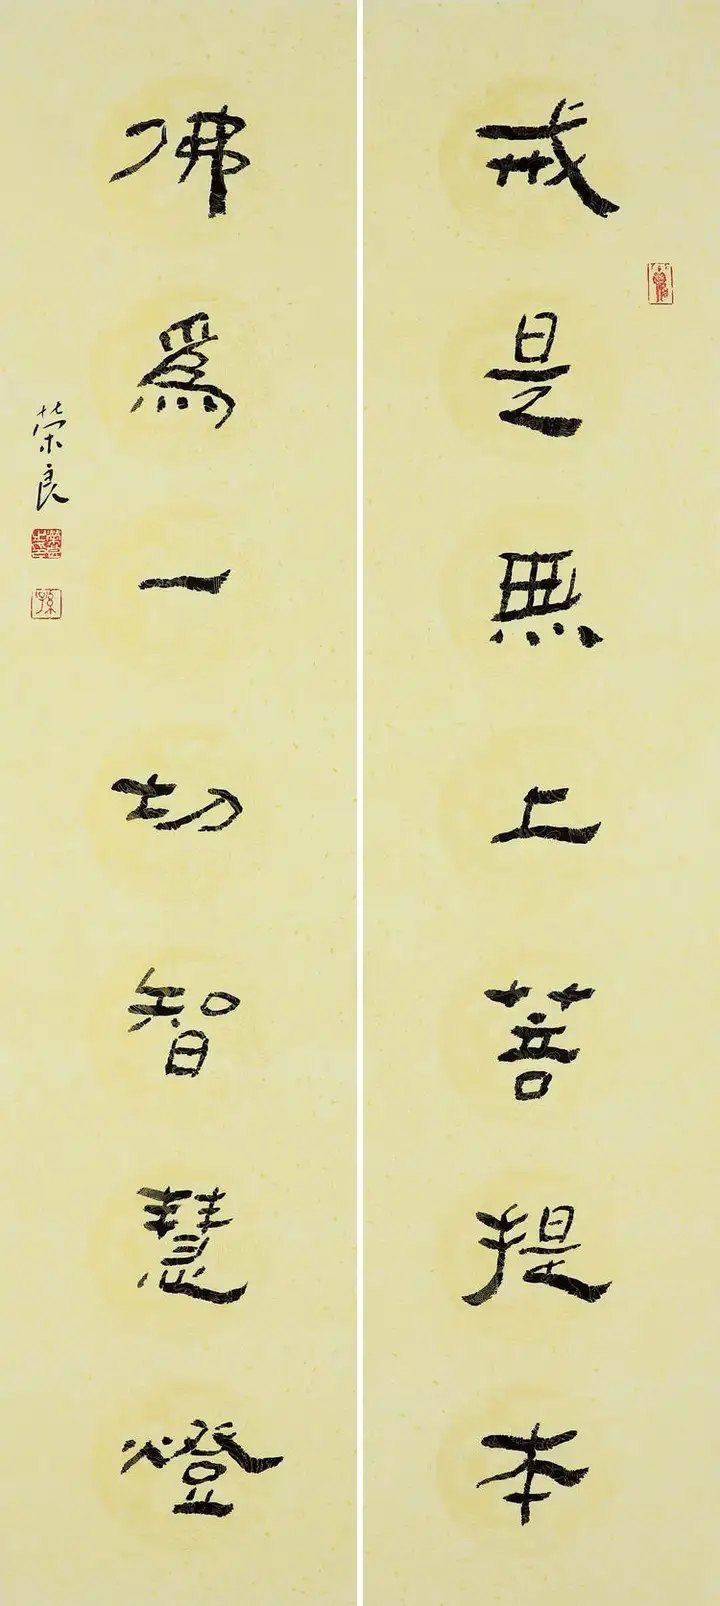 戒是無上菩提本
佛為一切智慧燈
榮良
孫